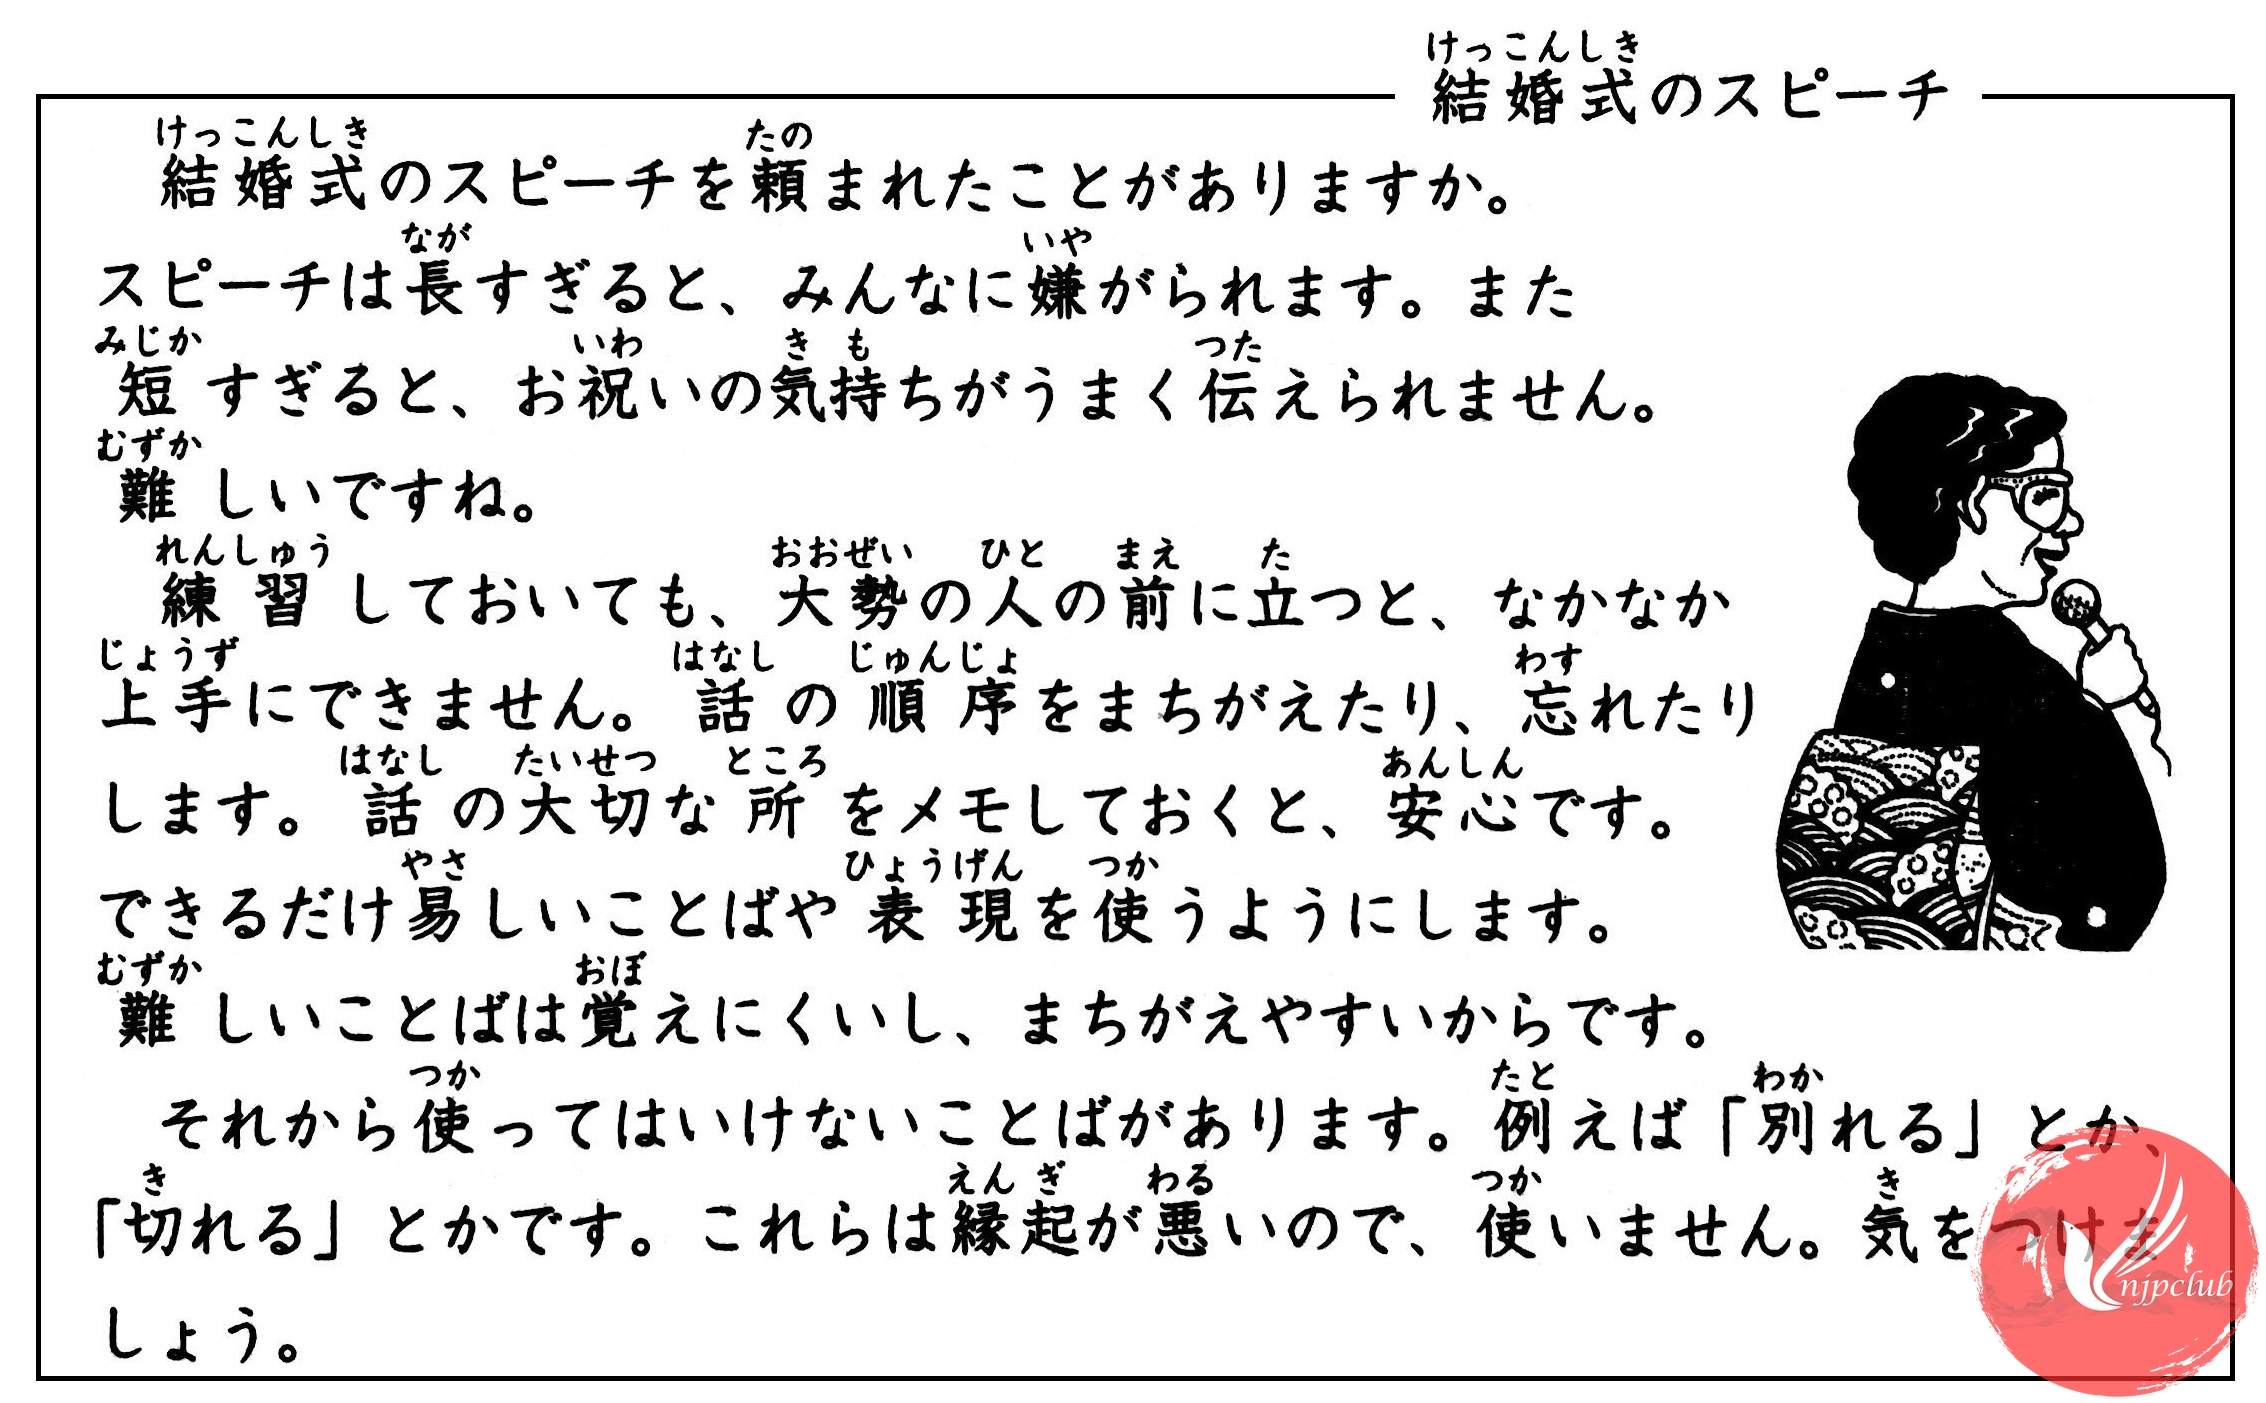 けっこんしき
結婚式のスピーチ
けっこんしき たの
結婚式のスピーチを頼まれたことがありますか。
なが いや
スピーチは長すぎると、みんなに嫌がられます。また
みじか いわ き も つた
短すぎると、お祝いの気持ちがうまく伝えられません。
むずか
難しいですね。
れんしゅう おおぜい ひと まえ た
練習しておいても、大勢の人の前に立つと、なかなか
じょうず はなし じゅんじょ わす
上手にできません。話の順序をまちがえたり、忘れたり
はなし たいせつ ところ あんしん
します。話の大切な所をメモしておくと、安心です。
やさ ひょうげん つか
できるだけ易しいことばや表現を使うようにします。
むずか おぼ
難しいことばは覚えにくいし、まちがえやすいからです。
つか たと わか
それから使ってはいけないことばがあります。例えば「別れる」とか、
き えん ぎ わる つか き
「切れる」とかです。これらは縁起が悪いので、使いません。気をつけま
しょう。
njpclub